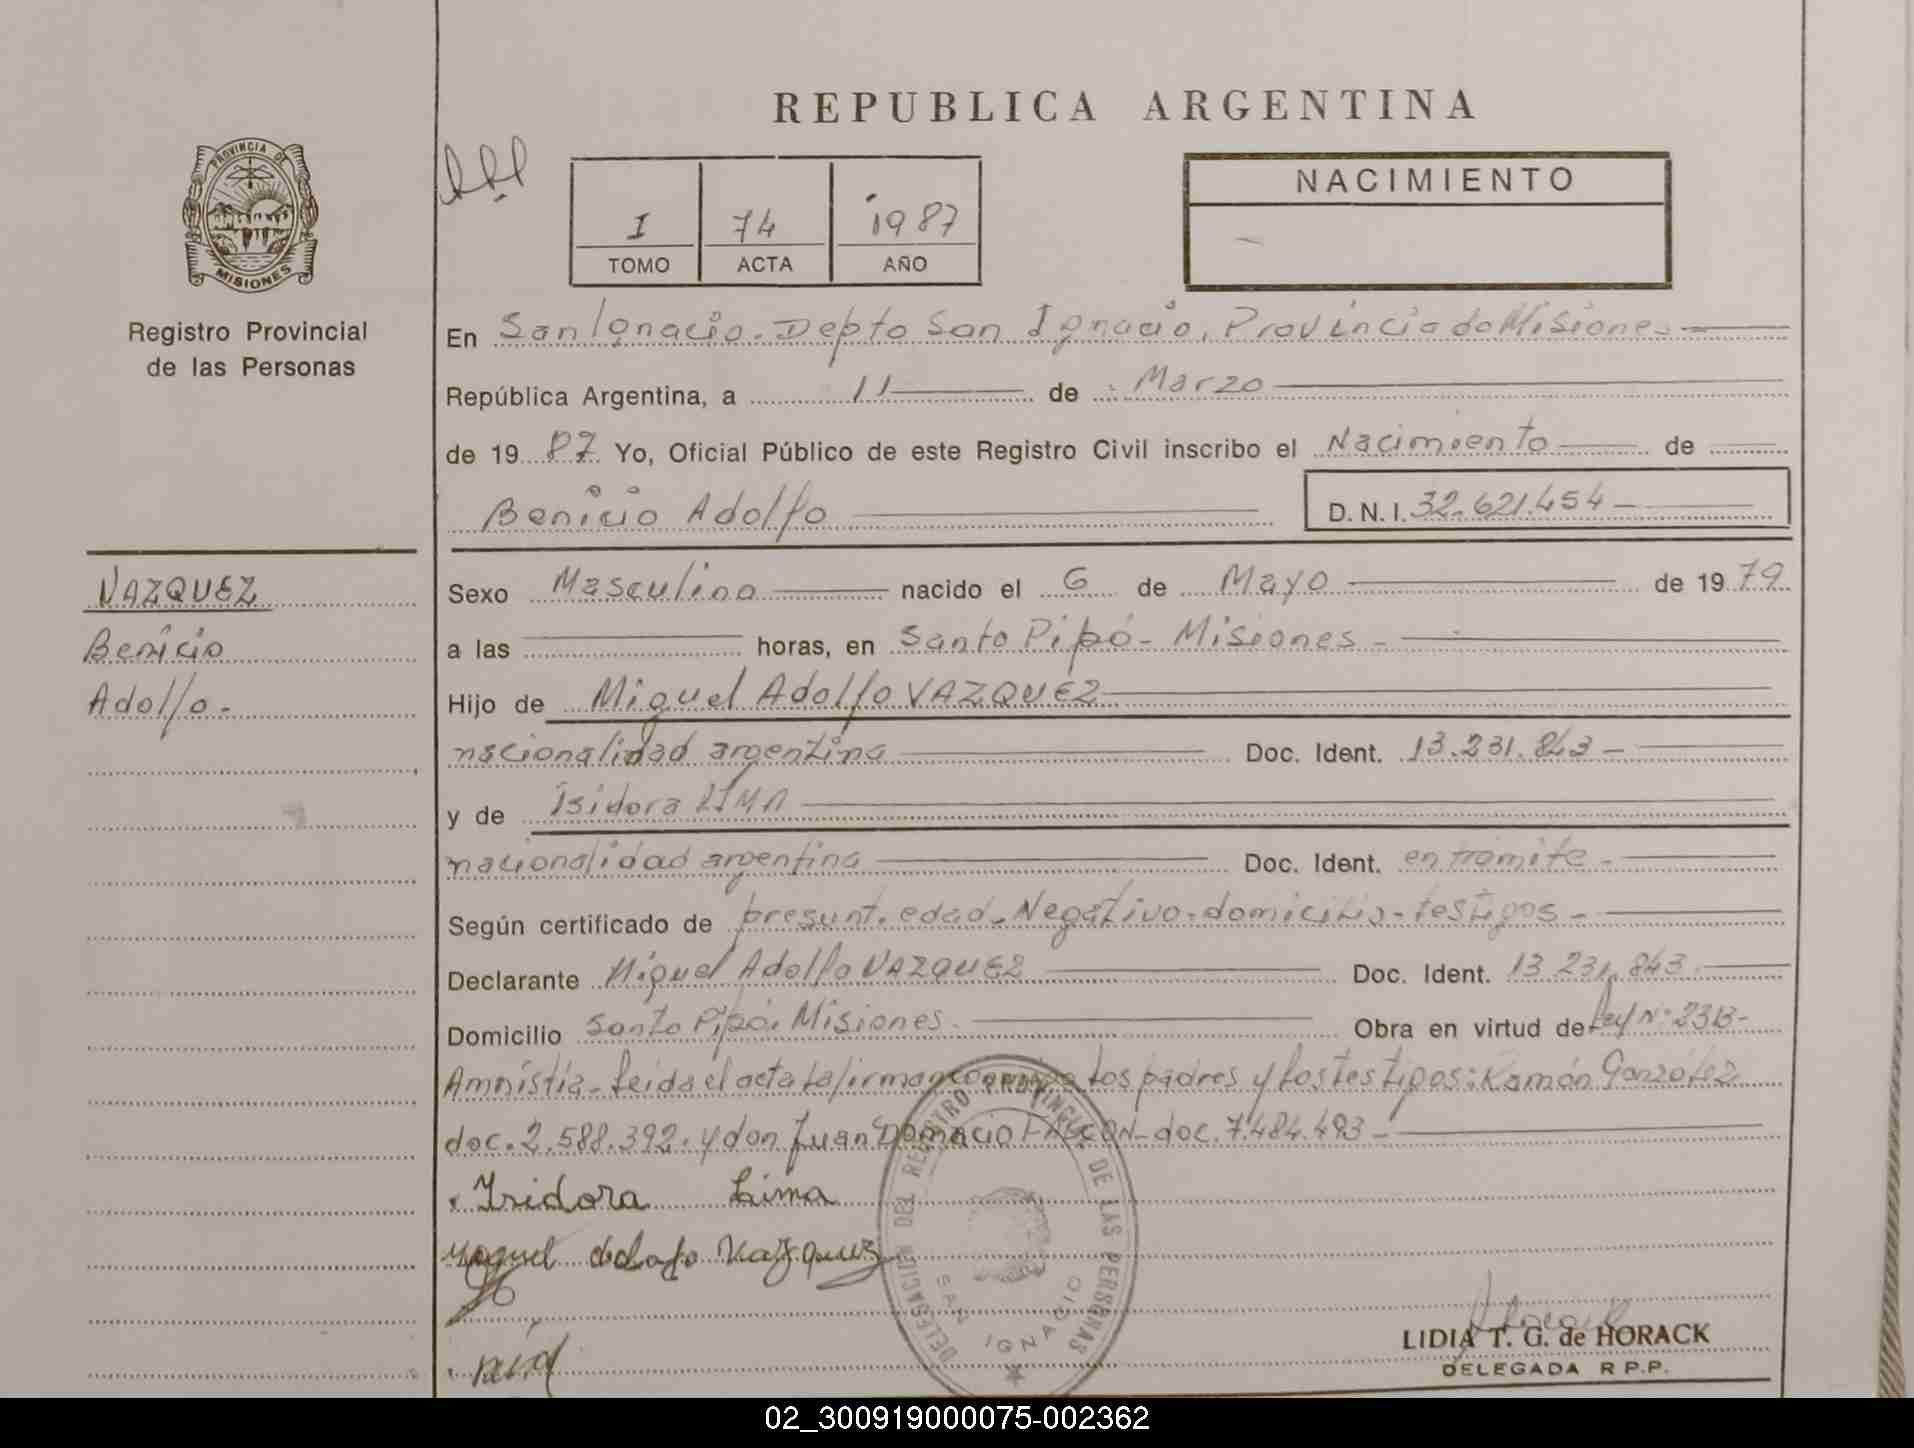 REPUBLICA ARGENTINA
PROVINCIA DE
MISIONES
Registro Provincial
de las Personas
I 74 1987
TOMO ACTA AÑO
NACIMIENTO
En San Ignacio - Depto San Ignacio, Provincia de Misiones
República Argentina, a 11 de Marzo
de 19 87 Yo, Oficial Público de este Registro Civil inscribo el Nacimiento de
Benicio Adolfo D. N. I. 32.621.454
VAZQUEZ
Benicio
Adolfo.-
Sexo Masculino nacido el 6 de Mayo de 19 79
a las horas, en Santo Pipó - Misiones -
Hijo de Miguel Adolfo VAZQUEZ
nacionalidad argentina Doc. Ident. 13.231.843 -
y de Isidora LIMA
nacionalidad argentina Doc. Ident. en tramite -
Según certificado de presunt. edad - Negativo - domicilio - testigos -
Declarante Miguel Adolfo VAZQUEZ Doc. Ident. 13.231.843
Domicilio Santo Pipó. Misiones. Obra en virtud de Ley Nº 2313-
Amnistía - leida el acta la firman los padres y los testigos: Ramón González
doc. 2.588.392. y don Juan FALCON - doc. 7.484.493 -
Isidora Lima
Miguel adolfo Vazquez
DELEGACION DEL REGISTRO PROVINCIAL DE LAS PERSONAS
SAN IGNACIO
LIDIA T. G. de HORACK
DELEGADA R P.P.
02_300919000075-002362